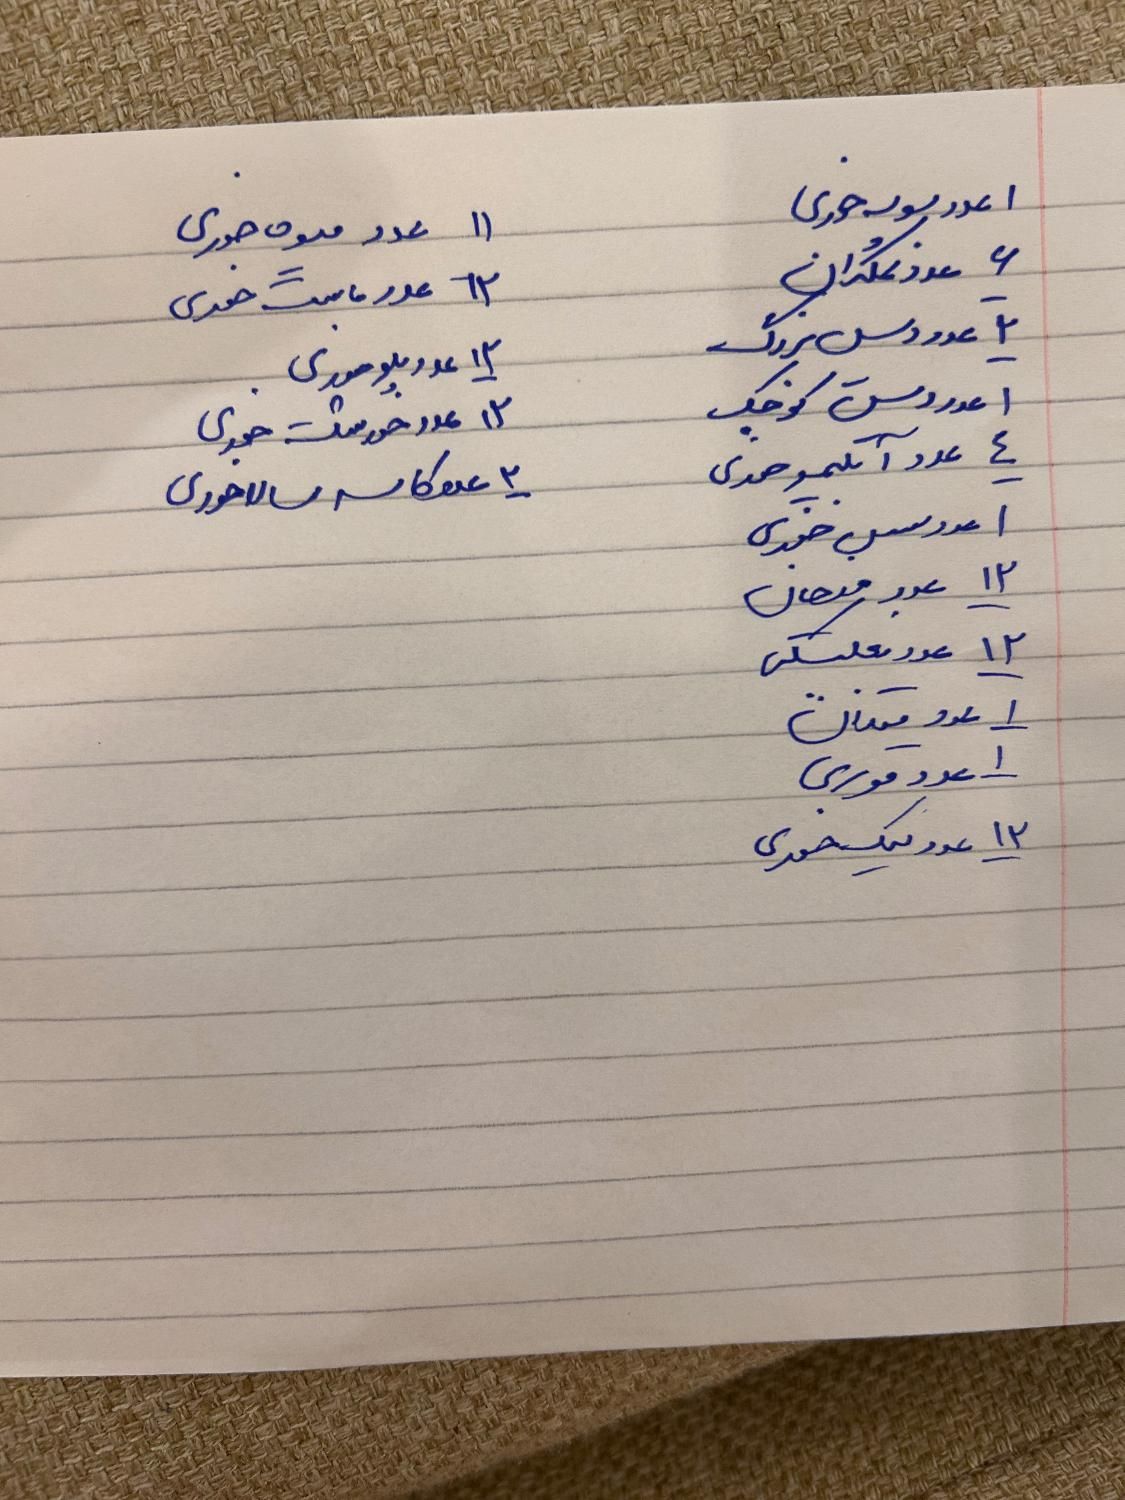 ۱ عدد سوپ خوری
۶ عدد نمکدان
۲ عدد دیس بزرگ
۱ عدد دیس کوچک
٤ عدد آبلیمو خوری
۱ عدد سس خوری
۱۲ عدد فنجان
۱۲ عدد نعلبکی
۱ عدد قندان
۱ عدد قوری
۱۲ عدد کیک خوری
۱۱ عدد میوه خوری
۱۲ عدد ماست خوری
۱۲ عدد پلو خوری
۱۲ عدد خورشت خوری
۲ عدد کاسه سالاد خوری